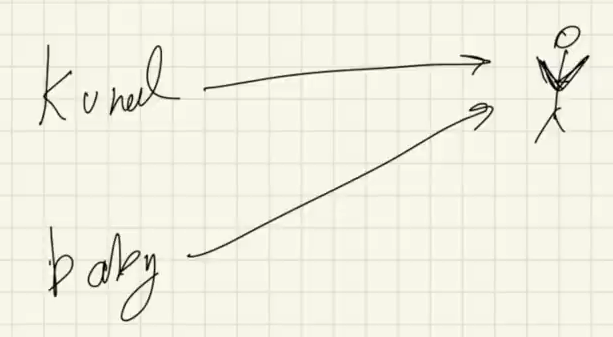 Kunal
baby